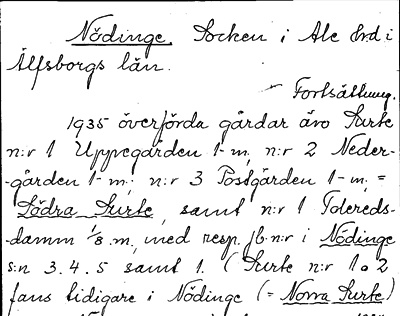 Nödinge. Socken i Ale hrd i
Älfsborgs län.
Fortsättning.
1935 överförda gårdar äro Surte
n:r 1 Uppegården 1-m, n:r 2 Neder-
-gården 1-m; n:r 3 Postgården 1-m; =
Södra Surte, samt n:r 1 Tolereds-
-damm 1/8 m, med resp. jb.n:r i Nödinge
s:n 3. 4. 5 samt 1. (Surte n:r 1 o 2
fans tidigare i Nödinge (= Norra Surte)